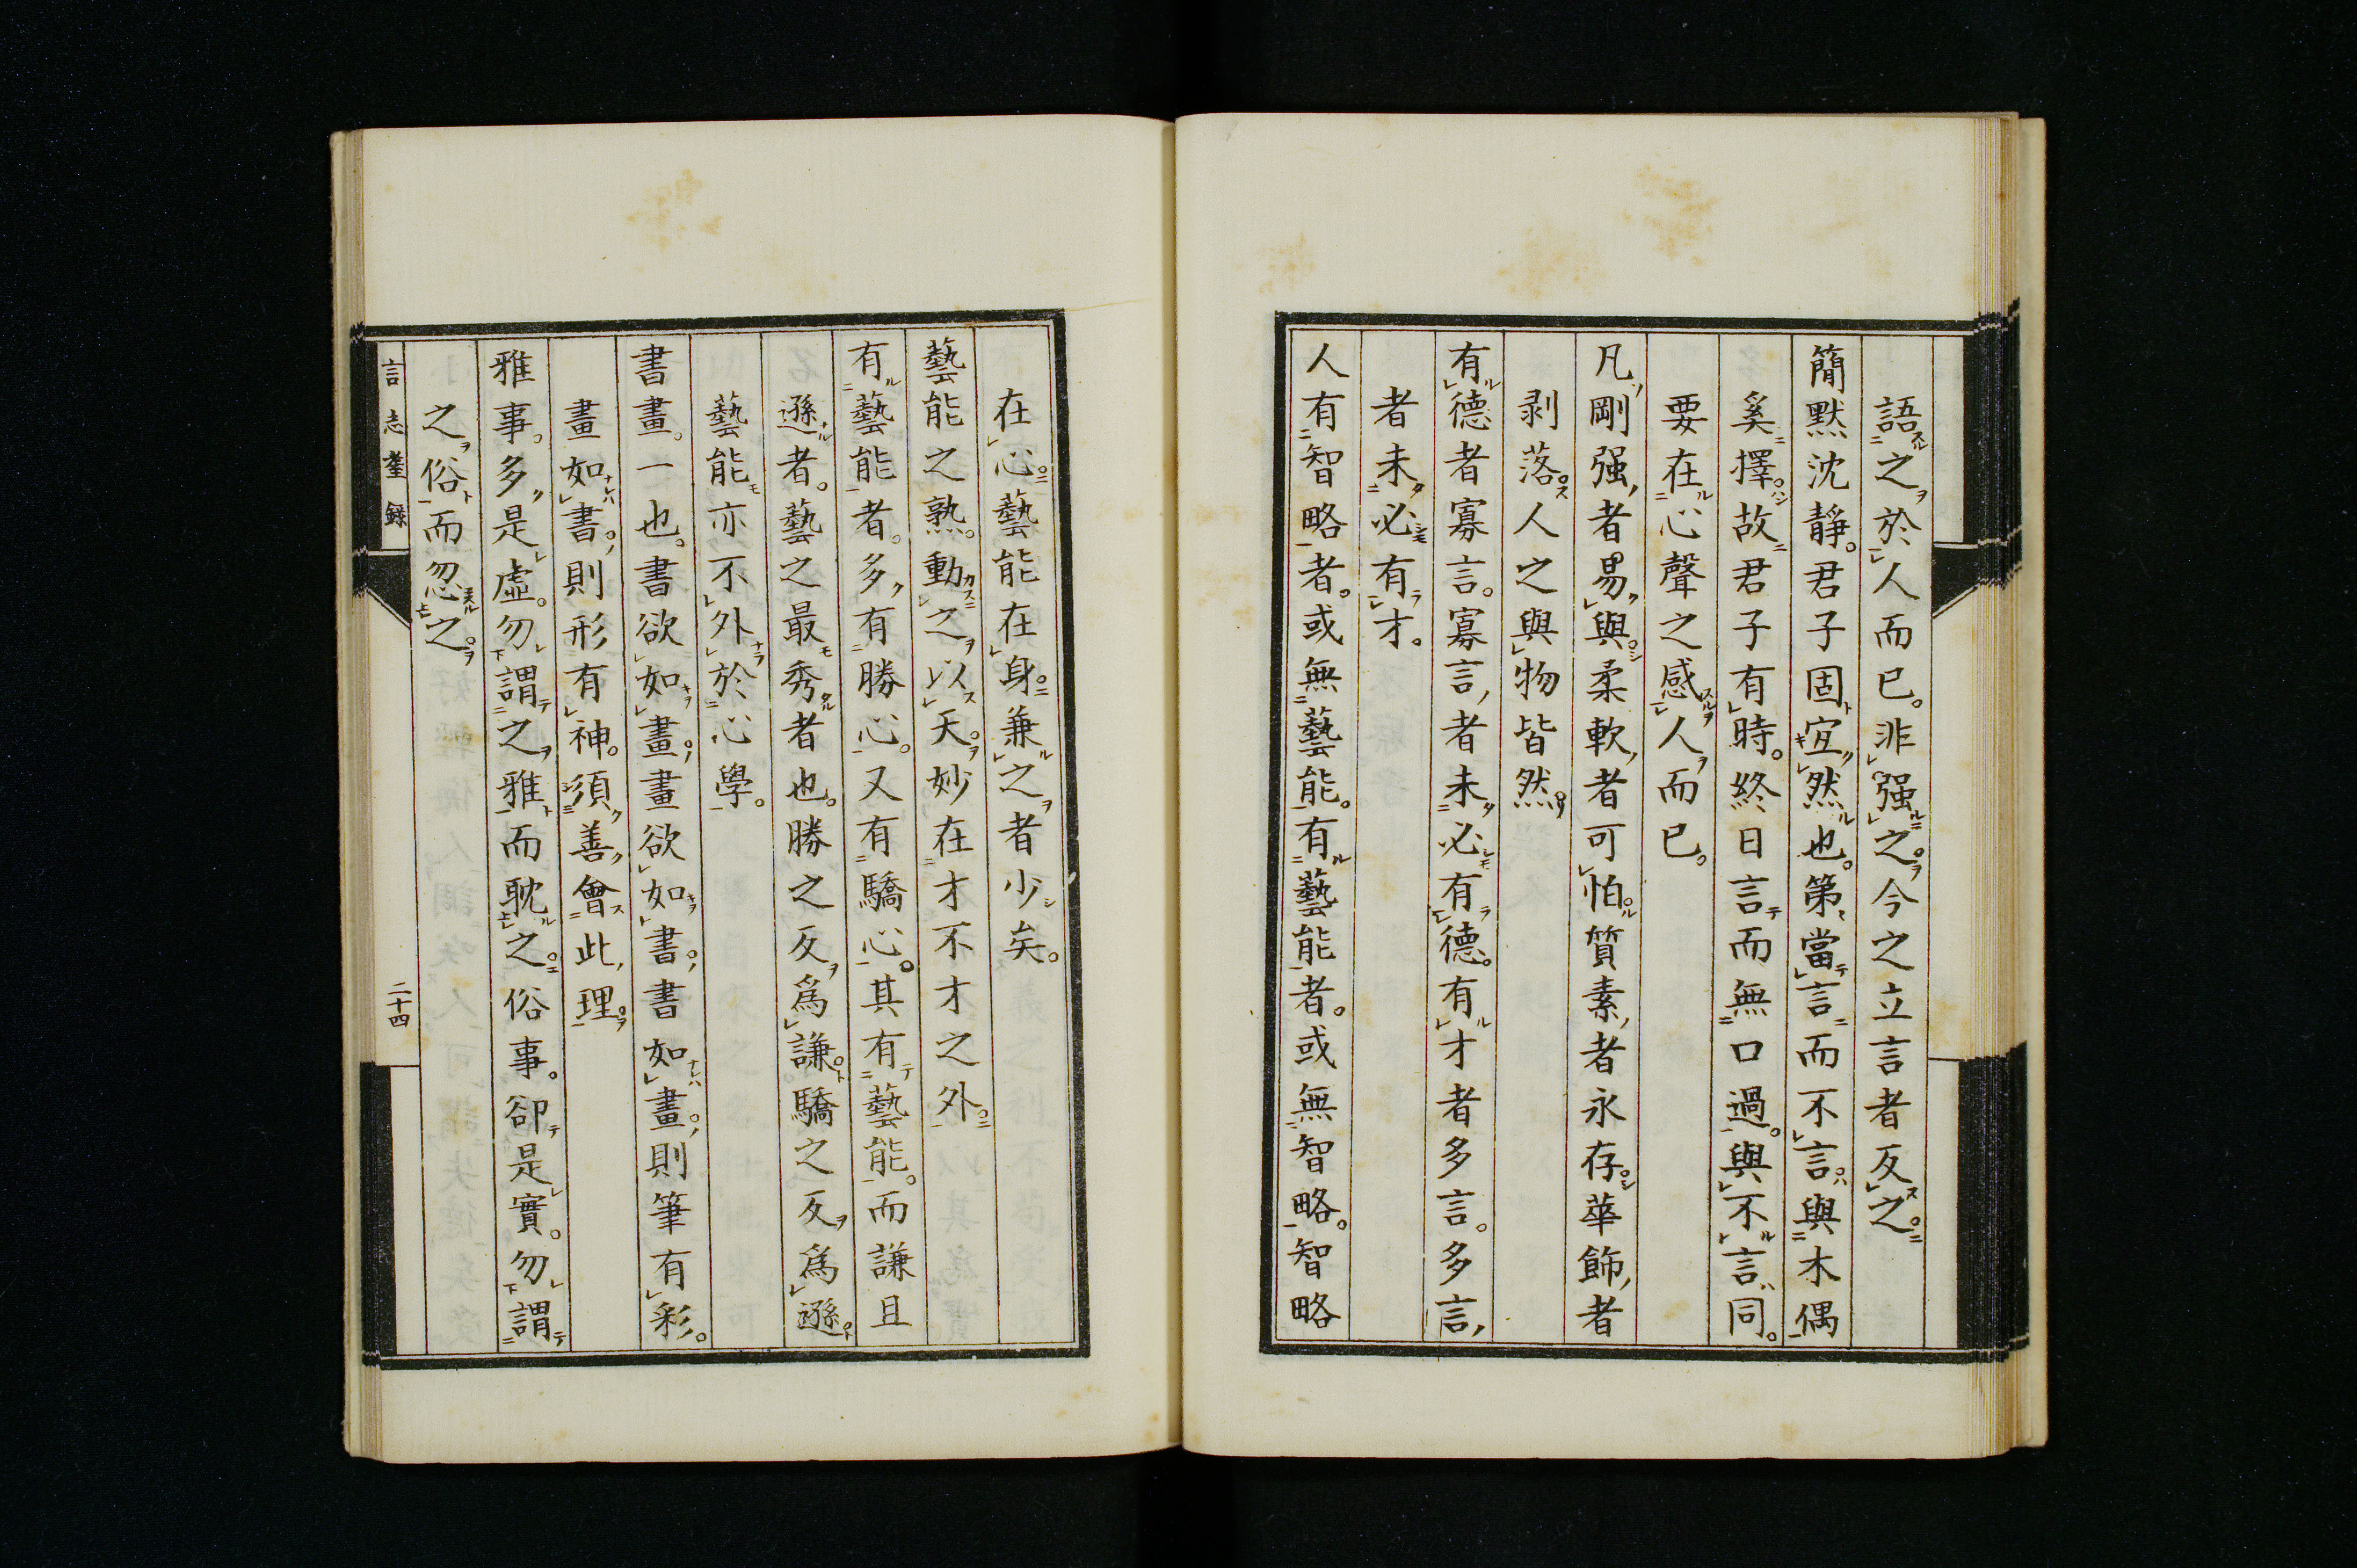 語之於人而已。非强之。今之立言者反之。
簡默沈靜。君子固宜然也。第當言而不言。與木偶
奚擇。故君子有時。終日言而無口過。與不言同。
要在心聲之感人而已。
凡剛强者易與。柔軟者可怕。質素者永存。華飾者
剥落。人之與物皆然。
有德者寡言。寡言者未必有德。有才者多言。多言
者未必有才。
人有智略者。或無藝能。有藝能者。或無智略。智略
在心。藝能在身。兼之者少矣。
藝能之熟。動之以天。妙在才不才之外。
有藝能者。多有勝心。又有驕心。其有藝能。而謙且
遜者。藝之最秀者也。勝之反爲謙。驕之反爲遜。
藝能亦不外於心學。
書畫。一也。書欲如畫。畫欲如書。書如畫。則筆有彩。
畫如書。則形有神。須善會此理。
雅事。多是虛。勿謂之雅而耽之。俗事。卻是實。勿謂
之俗而忽之。
言志耋録
二十四